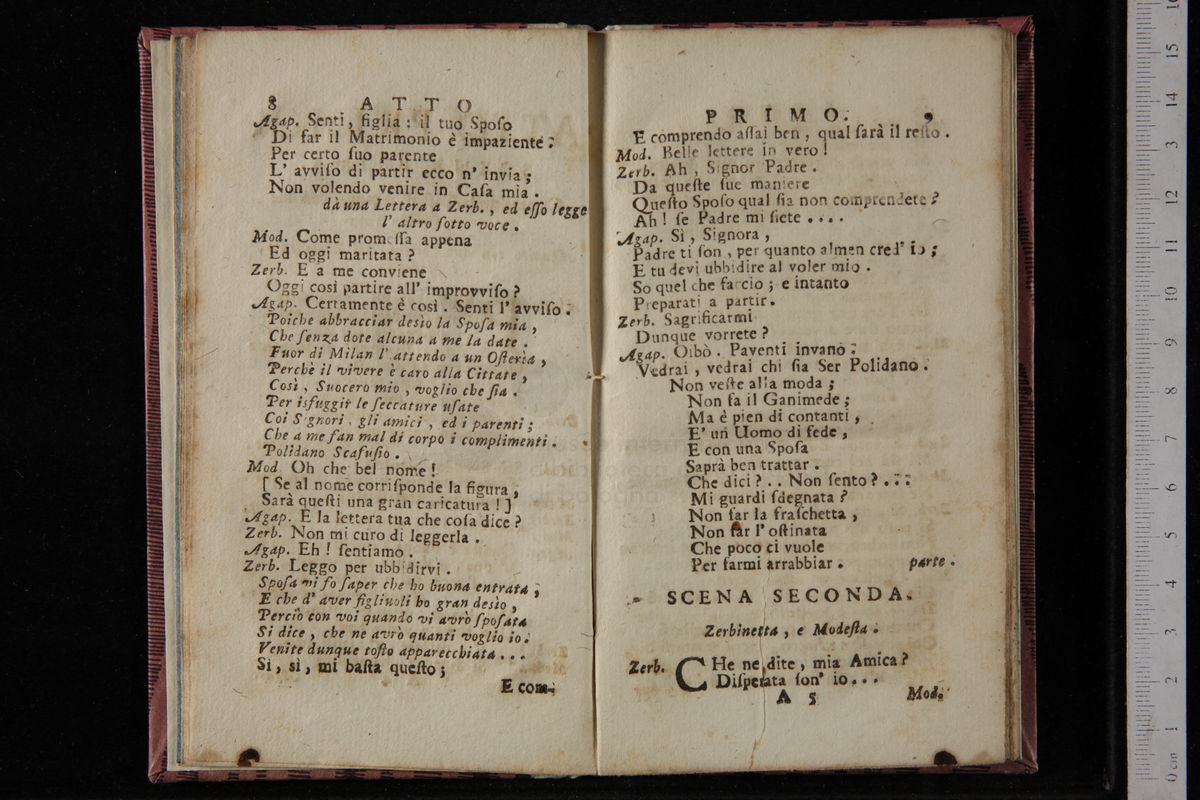 8 ATTO
Agap. Senti, figlia: il tuo Spoſo
Di far il Matrimonio è impaziente:
Per certo ſuo parente
L' avviſo di partir ecco n' invia;
Non volendo venire in Caſa mia.
dà una Lettera a Zerb., ed eſſo legge
l' altro ſotto voce.
Mod. Come promeſſa appena
Ed oggi maritata?
Zerb. E a me conviene
Oggi così partire all' improvviſo?
Agap. Certamente è così. Senti l' avviſo:
Poichè abbracciar desìo la Spoſa mia,
Che ſenza dote alcuna a me la date.
Fuor di Milan l' attendo a un Oſteria,
Perchè il vivere è caro alla Cittate,
Così, Suocero mio, voglio che ſia.
Per isfuggir le ſeccature uſate
Coi Signori, gli amici, ed i parenti;
Che a me fan mal di corpo i complimenti.
Polidano Scafuſio.
Mod. Oh che bel nome!
[ Se al nome corriſponde la figura,
Sarà queſti una gran caricatura! ]
Agap. E la lettera tua che coſa dice?
Zerb. Non mi curo di leggerla.
Agap. Eh! ſentiamo.
Zerb. Leggo per ubbidirvi.
Spoſa vi fo ſaper che ho buona entrata;
E che d' aver figliuoli ho gran desìo,
Perciò con voi quando vi avrò ſpoſata
Si dice, che ne avrò quanti voglio io:
Venite dunque toſto apparecchiata...
Sì, sì, mi baſta queſto;
E com-
PRIMO. 9
E comprendo aſſai ben, qual ſarà il reſto.
Mod. Belle lettere in vero!
Zerb. Ah, Signor Padre.
Da queſte ſue maniere
Queſto Spoſo qual ſia non comprendete?
Ah! ſe Padre mi ſiete....
Agap. Sì, Signora,
Padre ti ſon, per quanto almen cred' io;
E tu devi ubbidire al voler mio.
So quel che faccio; e intanto
Preparati a partir.
Zerb. Sagrificarmi
Dunque vorrete?
Agap. Oibò. Paventi invano:
Vedrai, vedrai chi ſia Ser Polidano.
Non veſte alla moda;
Non fa il Ganimede;
Ma è pien di contanti,
E' un Uomo di fede,
E con una Spoſa
Saprà ben trattar.
Che dici?.. Non ſento?...
Mi guardi ſdegnata?
Non far la fraſchetta,
Non far l' oſtinata
Che poco ci vuole
Per farmi arrabbiar. parte.
SCENA SECONDA.
Zerbinetta, e Modeſta.
Zerb. CHe ne dite, mia Amica?
Diſperata ſon' io...
A 5 Mod.